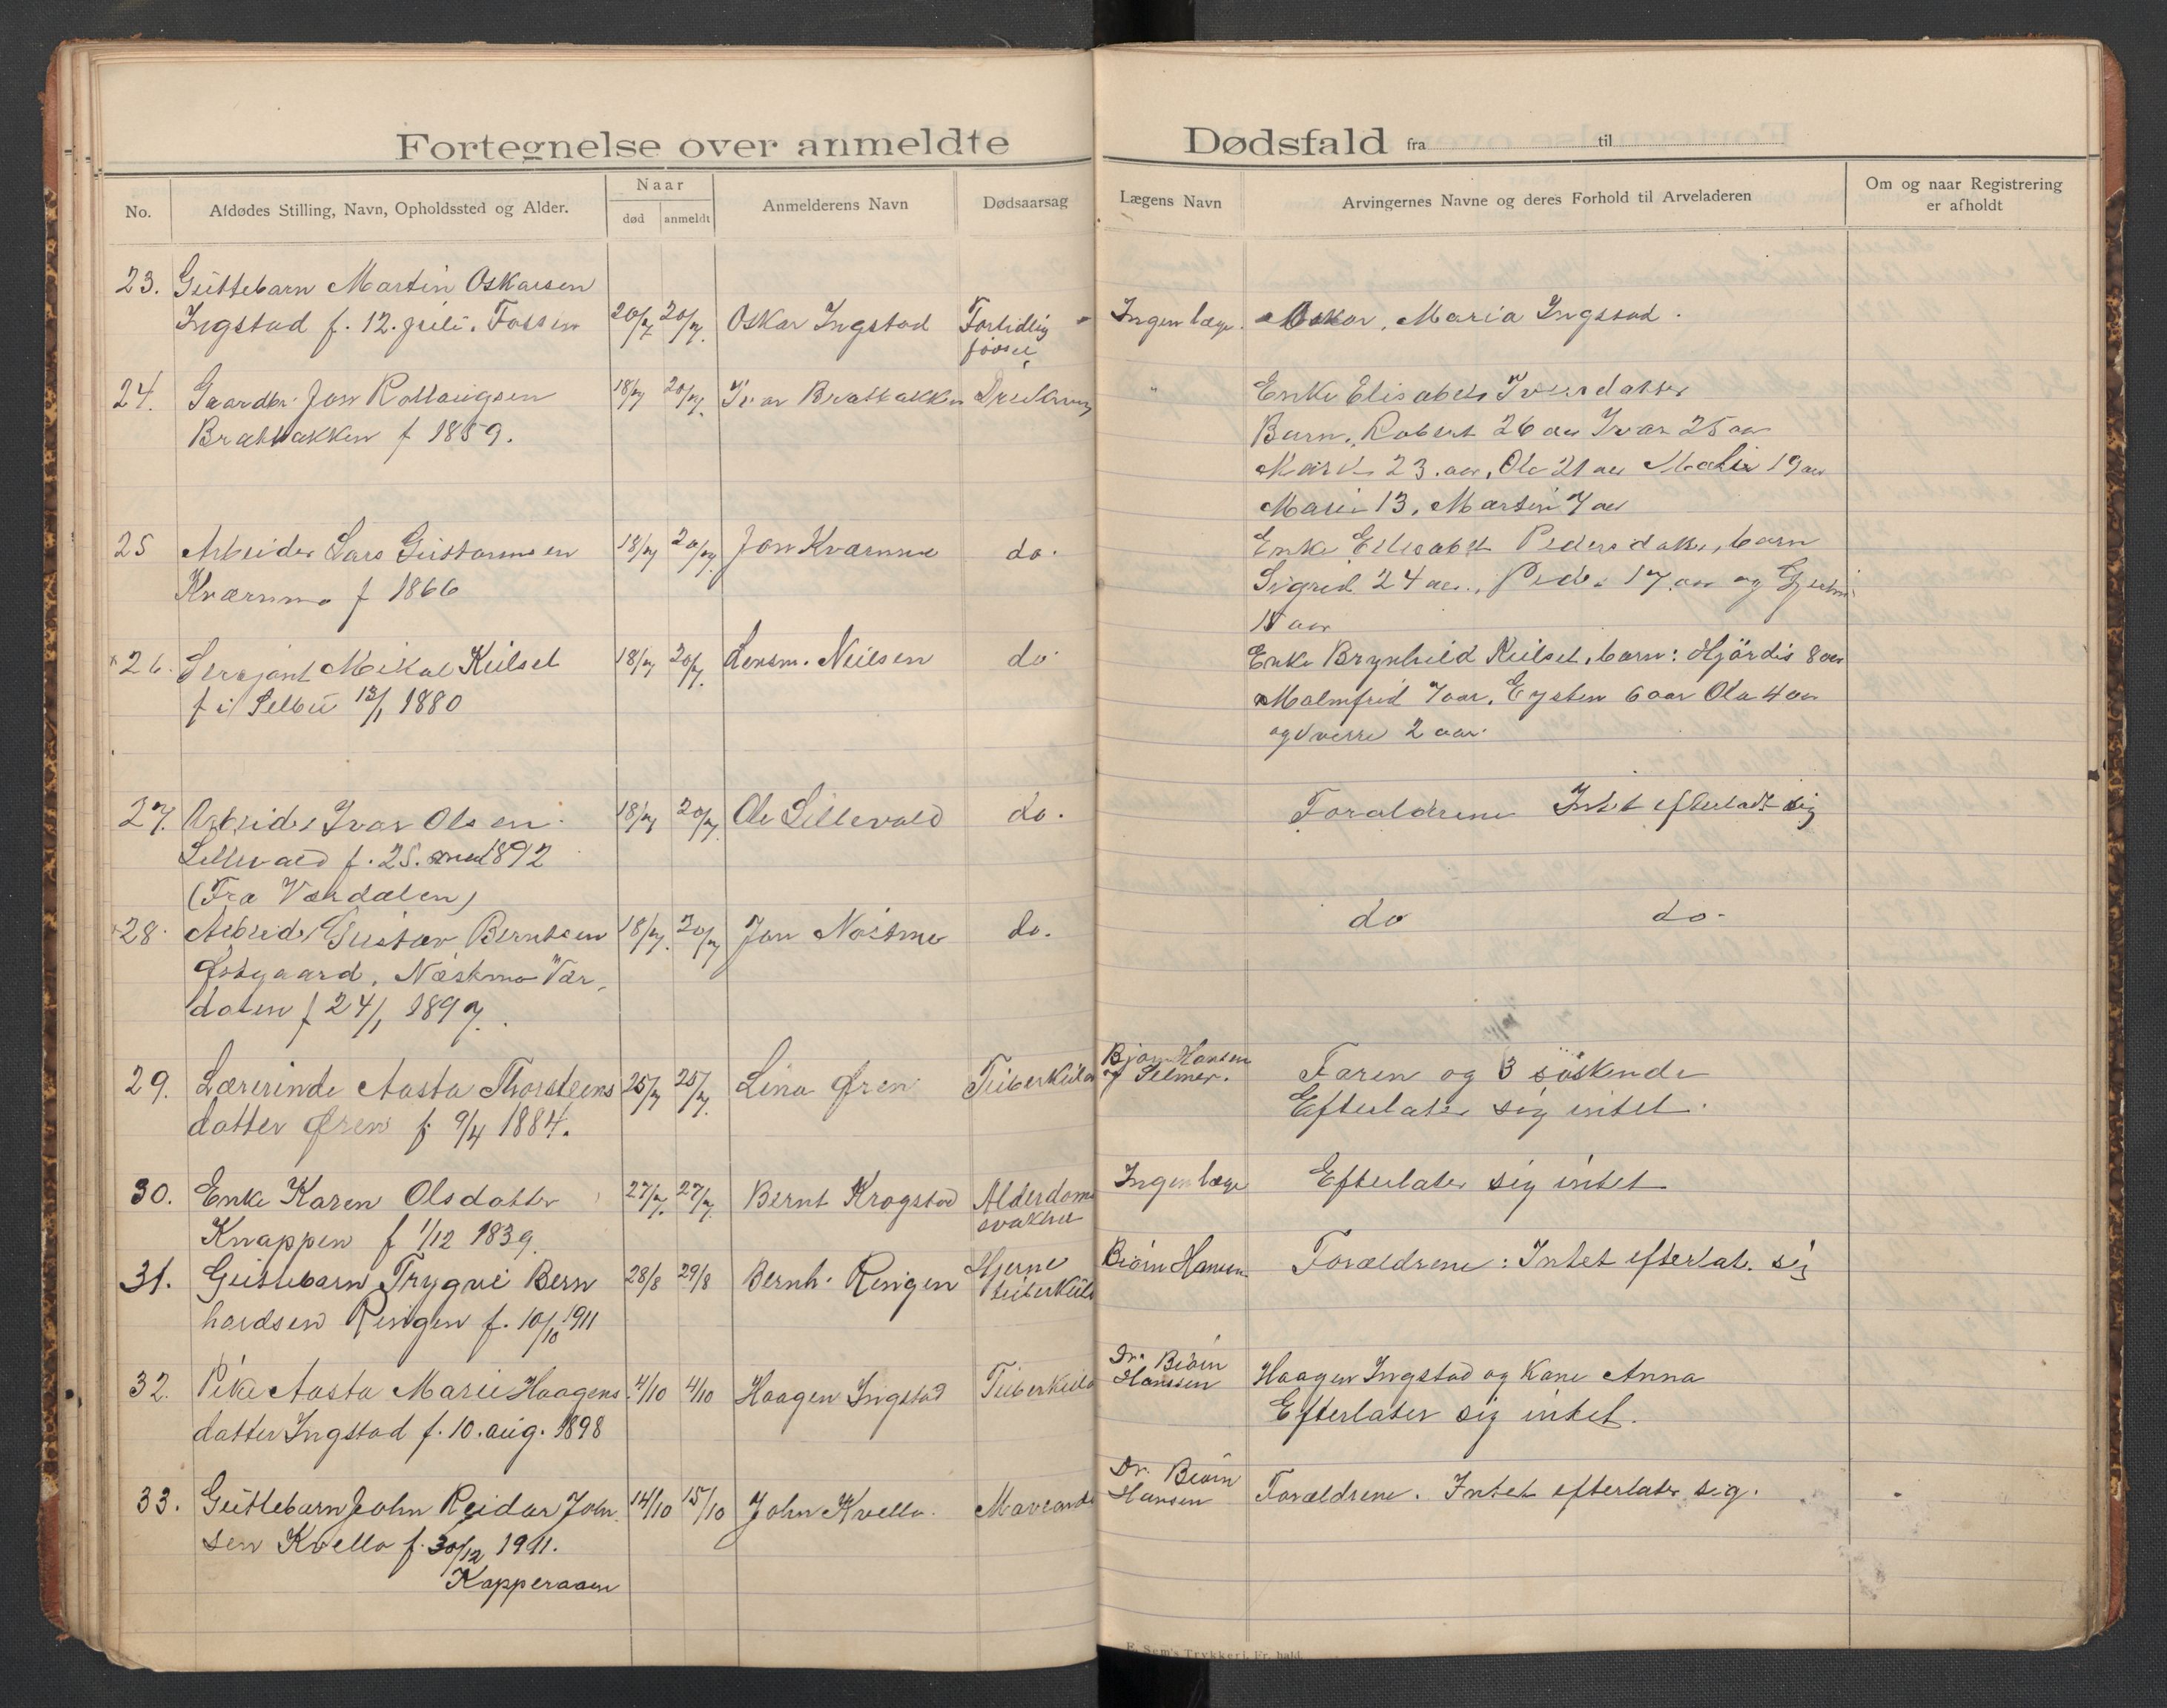 Fortegnelse over anmeldte Dødsfald fra til
No. Afdødes Stilling, Navn, Opholdssted og Alder. Naar død anmeldt Anmelderens Navn Dødsaarsag Lægens Navn Arvingernes Navne og deres Forhold til Arveladeren Om og naar Registrering er afholdt
23. Guttebarn Martin Oskarsen
Ingstad f. 12. juli. Fossen 20/7 20/7. Oskar Ingstad Fortidlig Ingen læge. Oskar, Maria Ingstad.
fødsel
24. Gaardbr. Jon Rollaugsen 18/7 20/7. Ivar Brattbakken Drukning " Enke Elisabeth Iversdatter
Brattbakken f 1859. Barn, Robert 26 aar Ivar 25 aar
Marit 23. aar, Ole 21 aar 19 aar
Marie 13, Martin 7 aar
25 Arbeider Lars Gustavsen 18/7 20/7. Jon Kværnmo do. Enke Elisabet Pedersdatter, barn
Kværnmo f 1866 Sigrid 24 aar, Peder 17 aar og
15 aar
26. Sersjant Mikal Kulset 18/7 20/7. Lensm. Nilsen do Enke Brynhild Kulset, barn: Hjördis 8 aar
f i Selbu 13/1 1880 Malmfrid 7 aar, Eysten 6 aar Ola 4 aar
og Sverre 2 aar.
27. Arbeider Ivar Olsen 18/7 20/7. Ole Lillevold do. Forældrene Intet efterladt sig
Lillevold f. 25. 1892
(Fra Værdalen)
28. Arbeider Gustav Berntsen 18/7. 20/7 Jon Næstmo do. do do.
Østgaard, Næstmo Vær-
dalen f 24/1 1897.
29. Lærerinde Aasta Thorsteens 25/7 25/7. Lina Øren Tuberkulo Bjørn Hansen og Selmer. Faren og 3 søskende
datter Øren f. 9/4 1884. Efterlater sig intet.
30. Enke Karen Olsdatter 27/7. 27/7. Bernt Krogstad Alderdoms Ingen læge Efterlater sig intet
Knappen f 1/12 1839. svakhet
31. Guttebarn Trygve Bern 28/8 29/8 Bernh. Ringen Hjerne tuberkulo Biørn Hansen Forældrene: Intet efterlat. sig
hardsen Ringen f. 10/10 1911
32. Pike Aasta Marie Haagens 4/10 4/10 Haagen Ingstad Tuberkulo Dr. Biørn Hanssen Haagen Ingstad og Kone Anna
datter Ingstad f. 10. aug. 1898 Efterlater sig intet.
33. Guttebarn John Reidar John 14/10 15/10 John Kvello. Mavcond Dr. Biørn Hansen Forældrene. Intet efterlater sig.
sen Kvello f. 30/12 1911.
Kapperaaen
F. Sem's Trykkeri, Fr.hald.